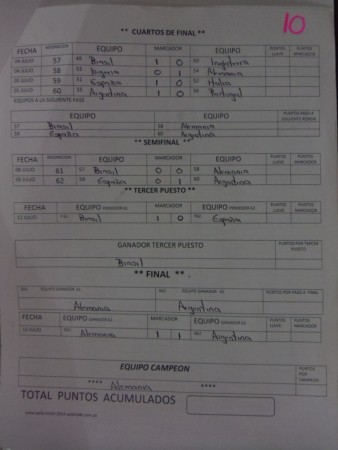 10
** CUARTOS DE FINAL **
FECHA EQUIPO MARCADOR EQUIPO PUNTOS LLAVE PUNTOS MARCADOR
04 JULIO 57 49 Brasil 1 0 50 Inglaterra
04 JULIO 58 53 0 1 54 Alemania
05 JULIO 59 51 España 1 0 52 Italia
05 JULIO 60 55 Argentina 1 0 56 Portugal
EQUIPOS A LA SIGUIENTE FASE
EQUIPO EQUIPO PUNTOS PASO A SIGUIENTE RONDA
57 Brasil 58 Alemania
59 España 60 Argentina
** SEMIFINAL **
FECHA EQUIPO MARCADOR EQUIPO PUNTOS LLAVE PUNTOS MARCADOR
08 JULIO 61 57 Brasil 0 0 58 Alemania
09 JULIO 62 59 España 0 0 60 Argentina
** TERCER PUESTO **
FECHA EQUIPO PERDEDOR 61 MARCADOR EQUIPO PERDEDOR 62 PUNTOS LLAVE PUNTOS MARCADOR
12 JULIO P61 Brasil 1 0 P62 España
GANADOR TERCER PUESTO PUNTOS POR TERCER PUESTO
Brasil
** FINAL **
EQUIPO GANADOR 61 EQUIPO GANADOR 62 PUNTOS POR PASO A FINAL
Alemania Argentina
FECHA EQUIPO GANADOR 61 MARCADOR EQUIPO GANADOR 62 PUNTOS LLAVE PUNTOS MARCADOR
13 JULIO Alemania 1 1 Argentina
EQUIPO CAMPEON PUNTOS POR CAMPEON
**** Alemania ****
TOTAL PUNTOS ACUMULADOS